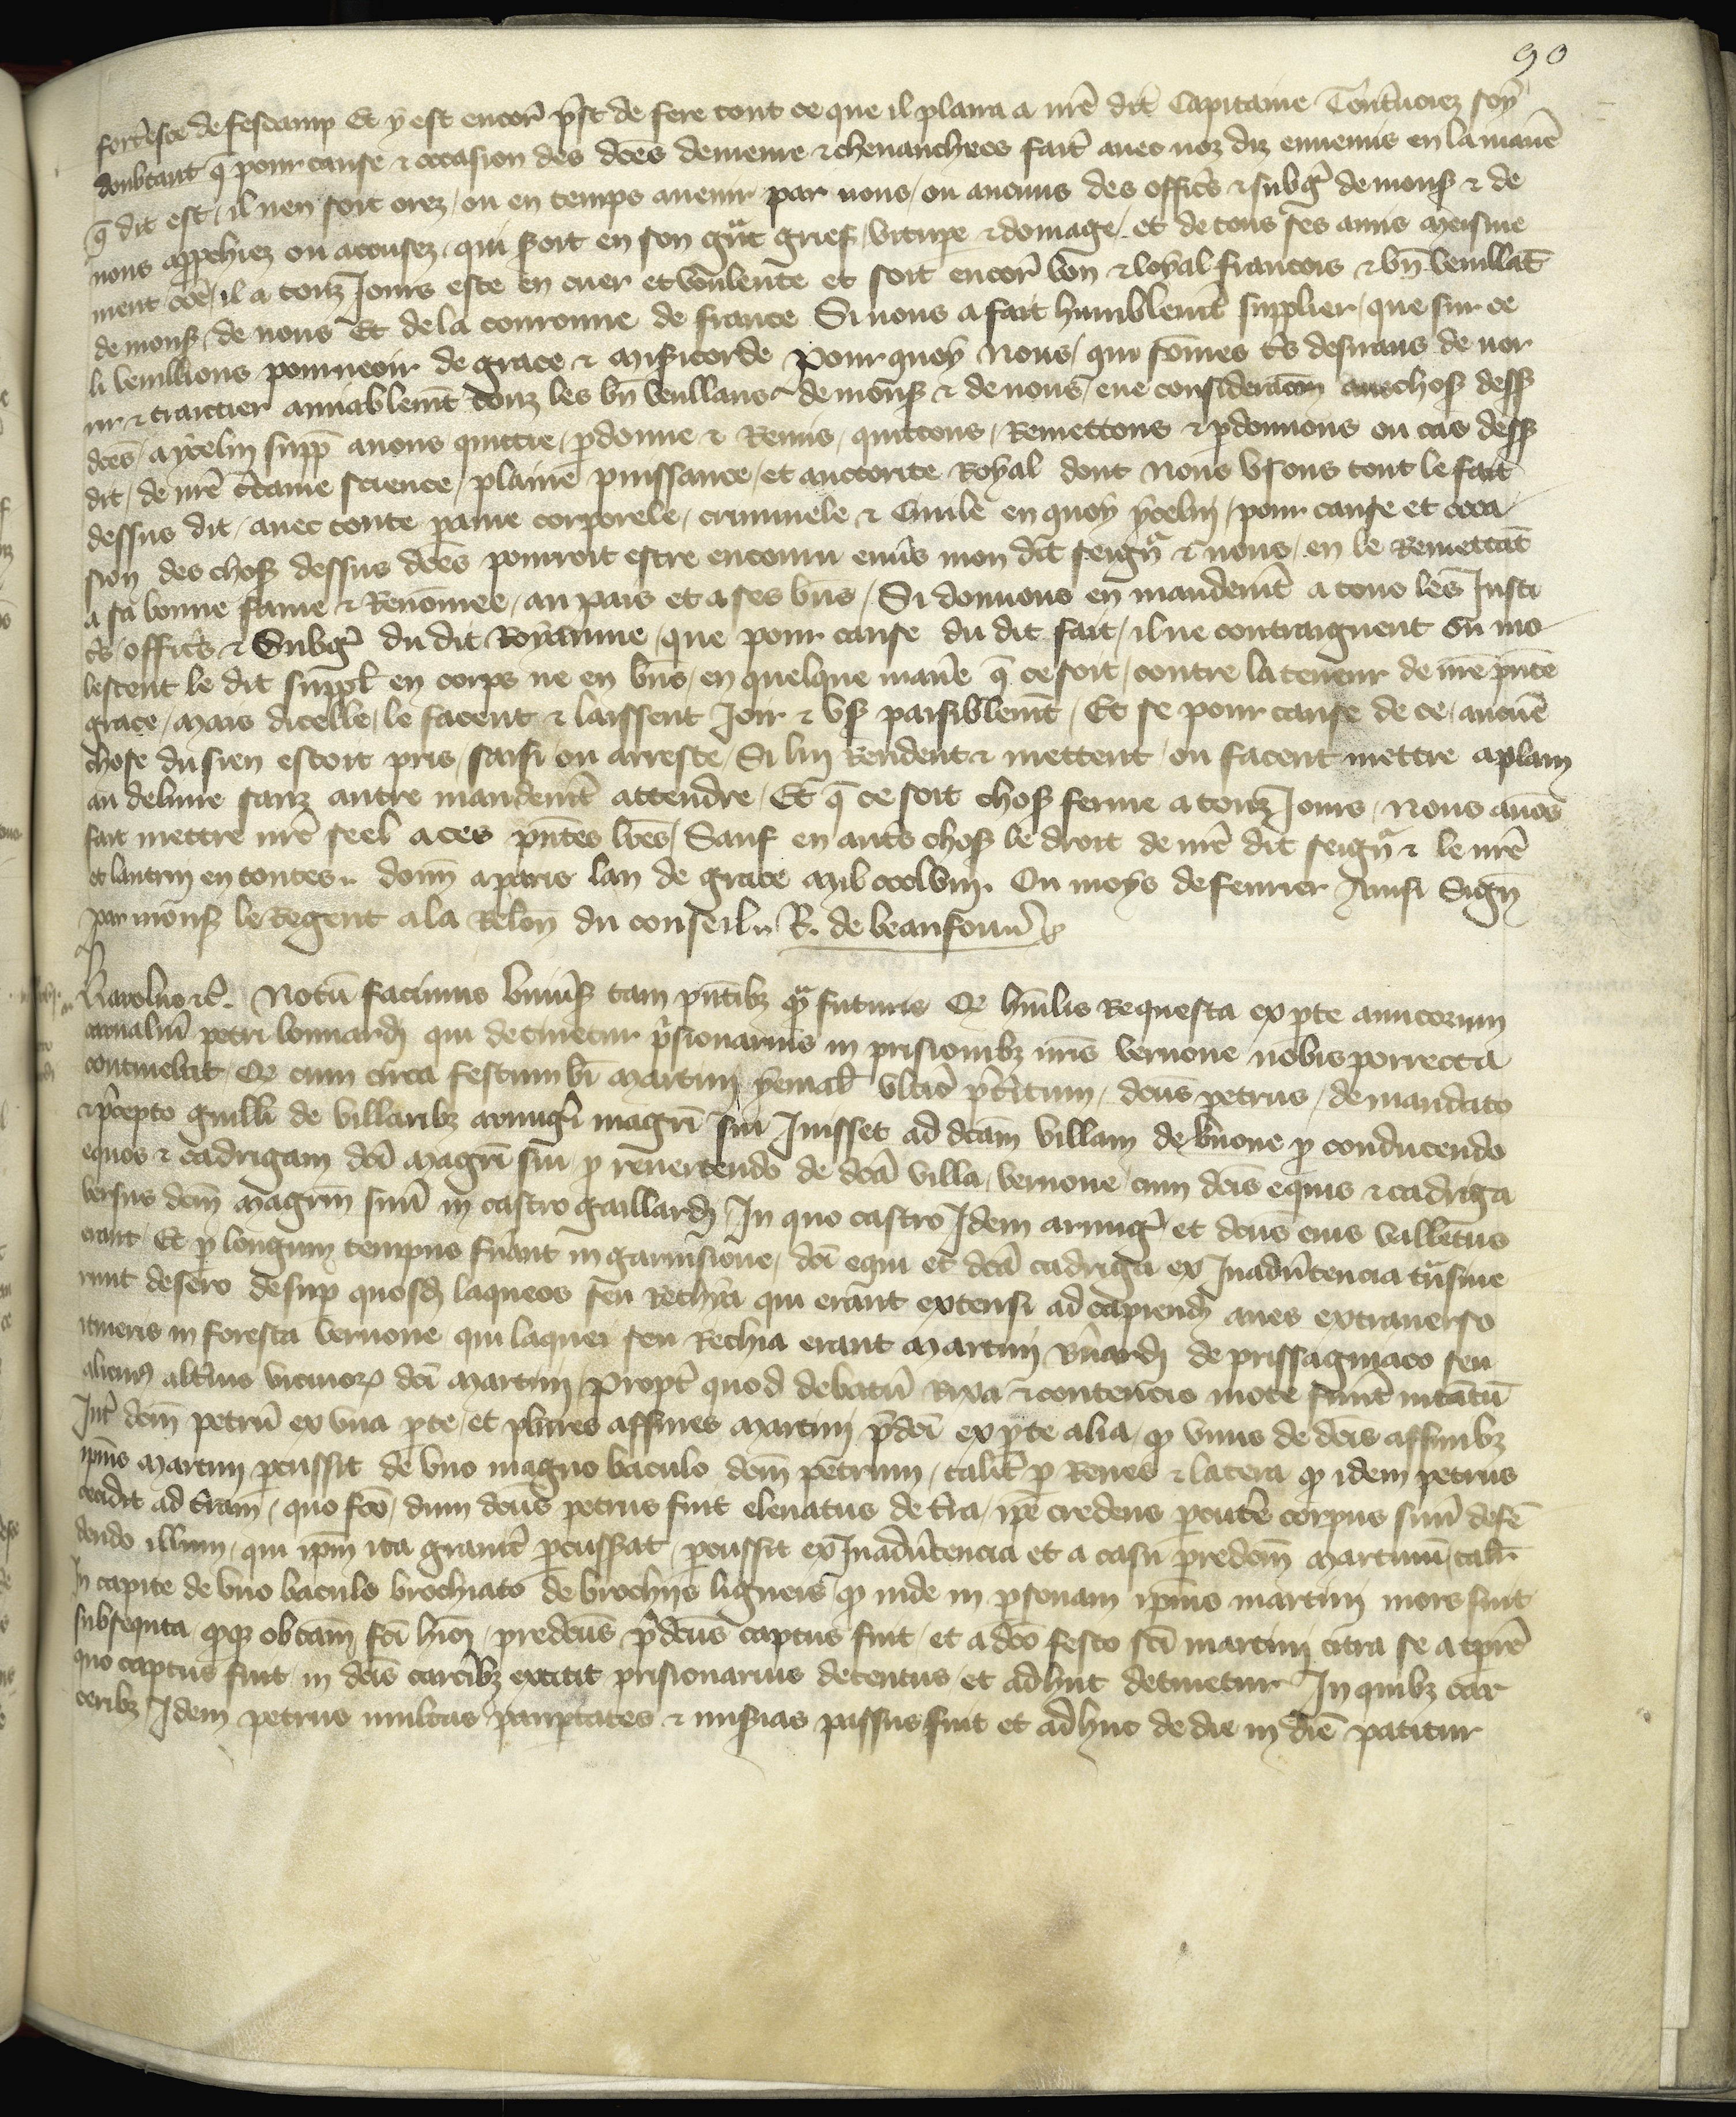 90
forteresce de fescamp Et y est encor p̃st de fere tout ce que il plaira a nr̃e dit Capitaine Toutuoiez soy
doubtant q̃ pour cause & occasion des dc̃es demeure & cheuauchees fait̃ auec noz diz ennemis en la manẽ
q̃ dit est / il nen soit orez / ou en temps auenir par nous / ou aucuns des offic̃s & subg̃ de mons̃ & de
nous app̃chiez ou acusez / qui soit en son gñt grief / vitupe & domage / et de tous ses amis meisme
ment cõe / il a touz Jours este en cuer et voulente et soit encor̃ bon & loyal francois & bñ veullãt
de mons̃ / de nous Et de la couronne de france Si nous a fait humblemẽt supplier / que sur ce
li veullions pourueoir de grace & miſicorde Pour quoy Nous / qui sõmes t̃s desirans de nor
rir & traictier amiablemẽt touz les bñ veullans de mons̃ & de nous / eue consideracõn aus chos̃ dess̃
dc̃es / aycelui supp̃ auons quittie / p̃donne & Remis / quittons / Remettons & p̃donnons ou cas dess̃
dit / de nr̃e c̃taine science / plaine puissance / et auctorite Royal dont Nous vsons tout le fait
dessus dit / auec toute paine corporele / criminele & Ciuile en quoy ycelui / pour cause et occa
sion des chos̃ dessus dc̃es pourroit estre encouru enũs mon dit seignr̃ & nous / en le Remettãt
a sa bonne fame & Renõmee / au pais et a ses bñs / Si donnons en mandemẽt a touz les Justi
c̃s offic̃s & Subg̃ du dit Royaume / que pour cause du dit fait / il ne contraignent ou mo
lestent le dit suppl̃ en corps ne en bñs / en quelque manẽ q̃ ce soit / contre la teneur de nr̃e p̃nte
grace / mais dicelle / le facent & laissent Joir & vs̃ paisiblemẽt / Et se pour cause de ce / aucuñe
chose du sien estoit pris / saisi / ou arreste / Si lui Rendent & mettent / ou facent mettre a plain
au deliure sanz autre mandemẽt attendre / Et q̃ ce soit chos̃ ferme a touz Jours / Nous auõs
fait mettre nr̃e seel a ces p̃ntes lr̃es / Sauf en autr̃s chos̃ le droit de nr̃e dit seignr̃ & le nr̃e
et lautrui en toutes .. donñ a paris lan de grace mil ccclviij. Ou moys de feurier Ainsi Signe
par mons̃ le Regent a la Relon̄ du conseil .. R. de beaufou
Karolus &c̃. Notũ facimus vniũs̃ tam p̃ntibȝ q̃ futuris Qz hũilis Requesta ex p̃te amicorum
carnaliũ petri bonnardi qui detinetur p̃sionarius in prisionibȝ nr̃is vernone nobis porrecta
continebat / Qz cum circa festum bĩ Martini yemal̃ vltĩo p̃tĩtum / dc̃us petrus / de mandato
& p̃cepto guill̃i de villaribȝ armigĩ magr̃i sui Juisset ad dc̃am villam de v̄none p̃ conducendo
equos & cadrigam dc̃i magr̃i sui / p̃ reuertendo de dc̃a villa / vernone / cum dc̃is equis & cadriga
versus dc̃m magr̃m suũ in castro gaillardi / In quo castro Idem armig̃ et dc̃us eius valletus
erant / Et p̃ longum tempus fũant in garnisione / dc̃i equi et dc̃a cadriga ex Inadũtencia t̃nsiue
runt de sero desup̃ quosd̃ laqueos seu Rechia qui erant extensi ad capiend̃ aues extrauerso
itineris in foresta vernone qui laquei seu Rechia erant martini de prissagniaco seu
alicuiꝰ alterius vicinoꝝ dc̃i martini / propt̃ quod debatũ Rixa & contencio mote fuerũt intãtũ
Int̃ dc̃m petrũ ex vna p̃te / et plures affines martini p̃dc̃i ex p̃te alia / qz vnus de dc̃is affinibȝ
ip̃ius martini p̃cussit de vno magno baculo dc̃m petrum / talit̃ p̃ Renes & latera qz idem petrus
cecidit ad t̃ram / quo fc̃o / dum dc̃us petrus fuit eleuatus de t̃ra / ip̃e credens p̃cutẽ corpus suũ defẽ
dendo illum / qui ip̃m ita grauit̃ p̃cussat / p̃cussit ex Inadũtencia et a casu predc̃m martinũ / talit̃
In capite de vno baculo brochiato de brochijs ligneis / qz inde in p̃sonam ip̃ius martini mors fuit
subsequta / qz ob cãm / fc̃i hĩoi / predc̃us p̃dc̃us captus fuit / et a dc̃o festo sc̃i martini citra se a tp̃re
quo captus fuit in dc̃is carc̃ibȝ extitit prisionarius detentus / et adhuc detinetur In quibȝ car
ceribȝ Idem petrus multas paup̃tates & mis̃ias passus fuit et adhuc de die in diẽ patitur